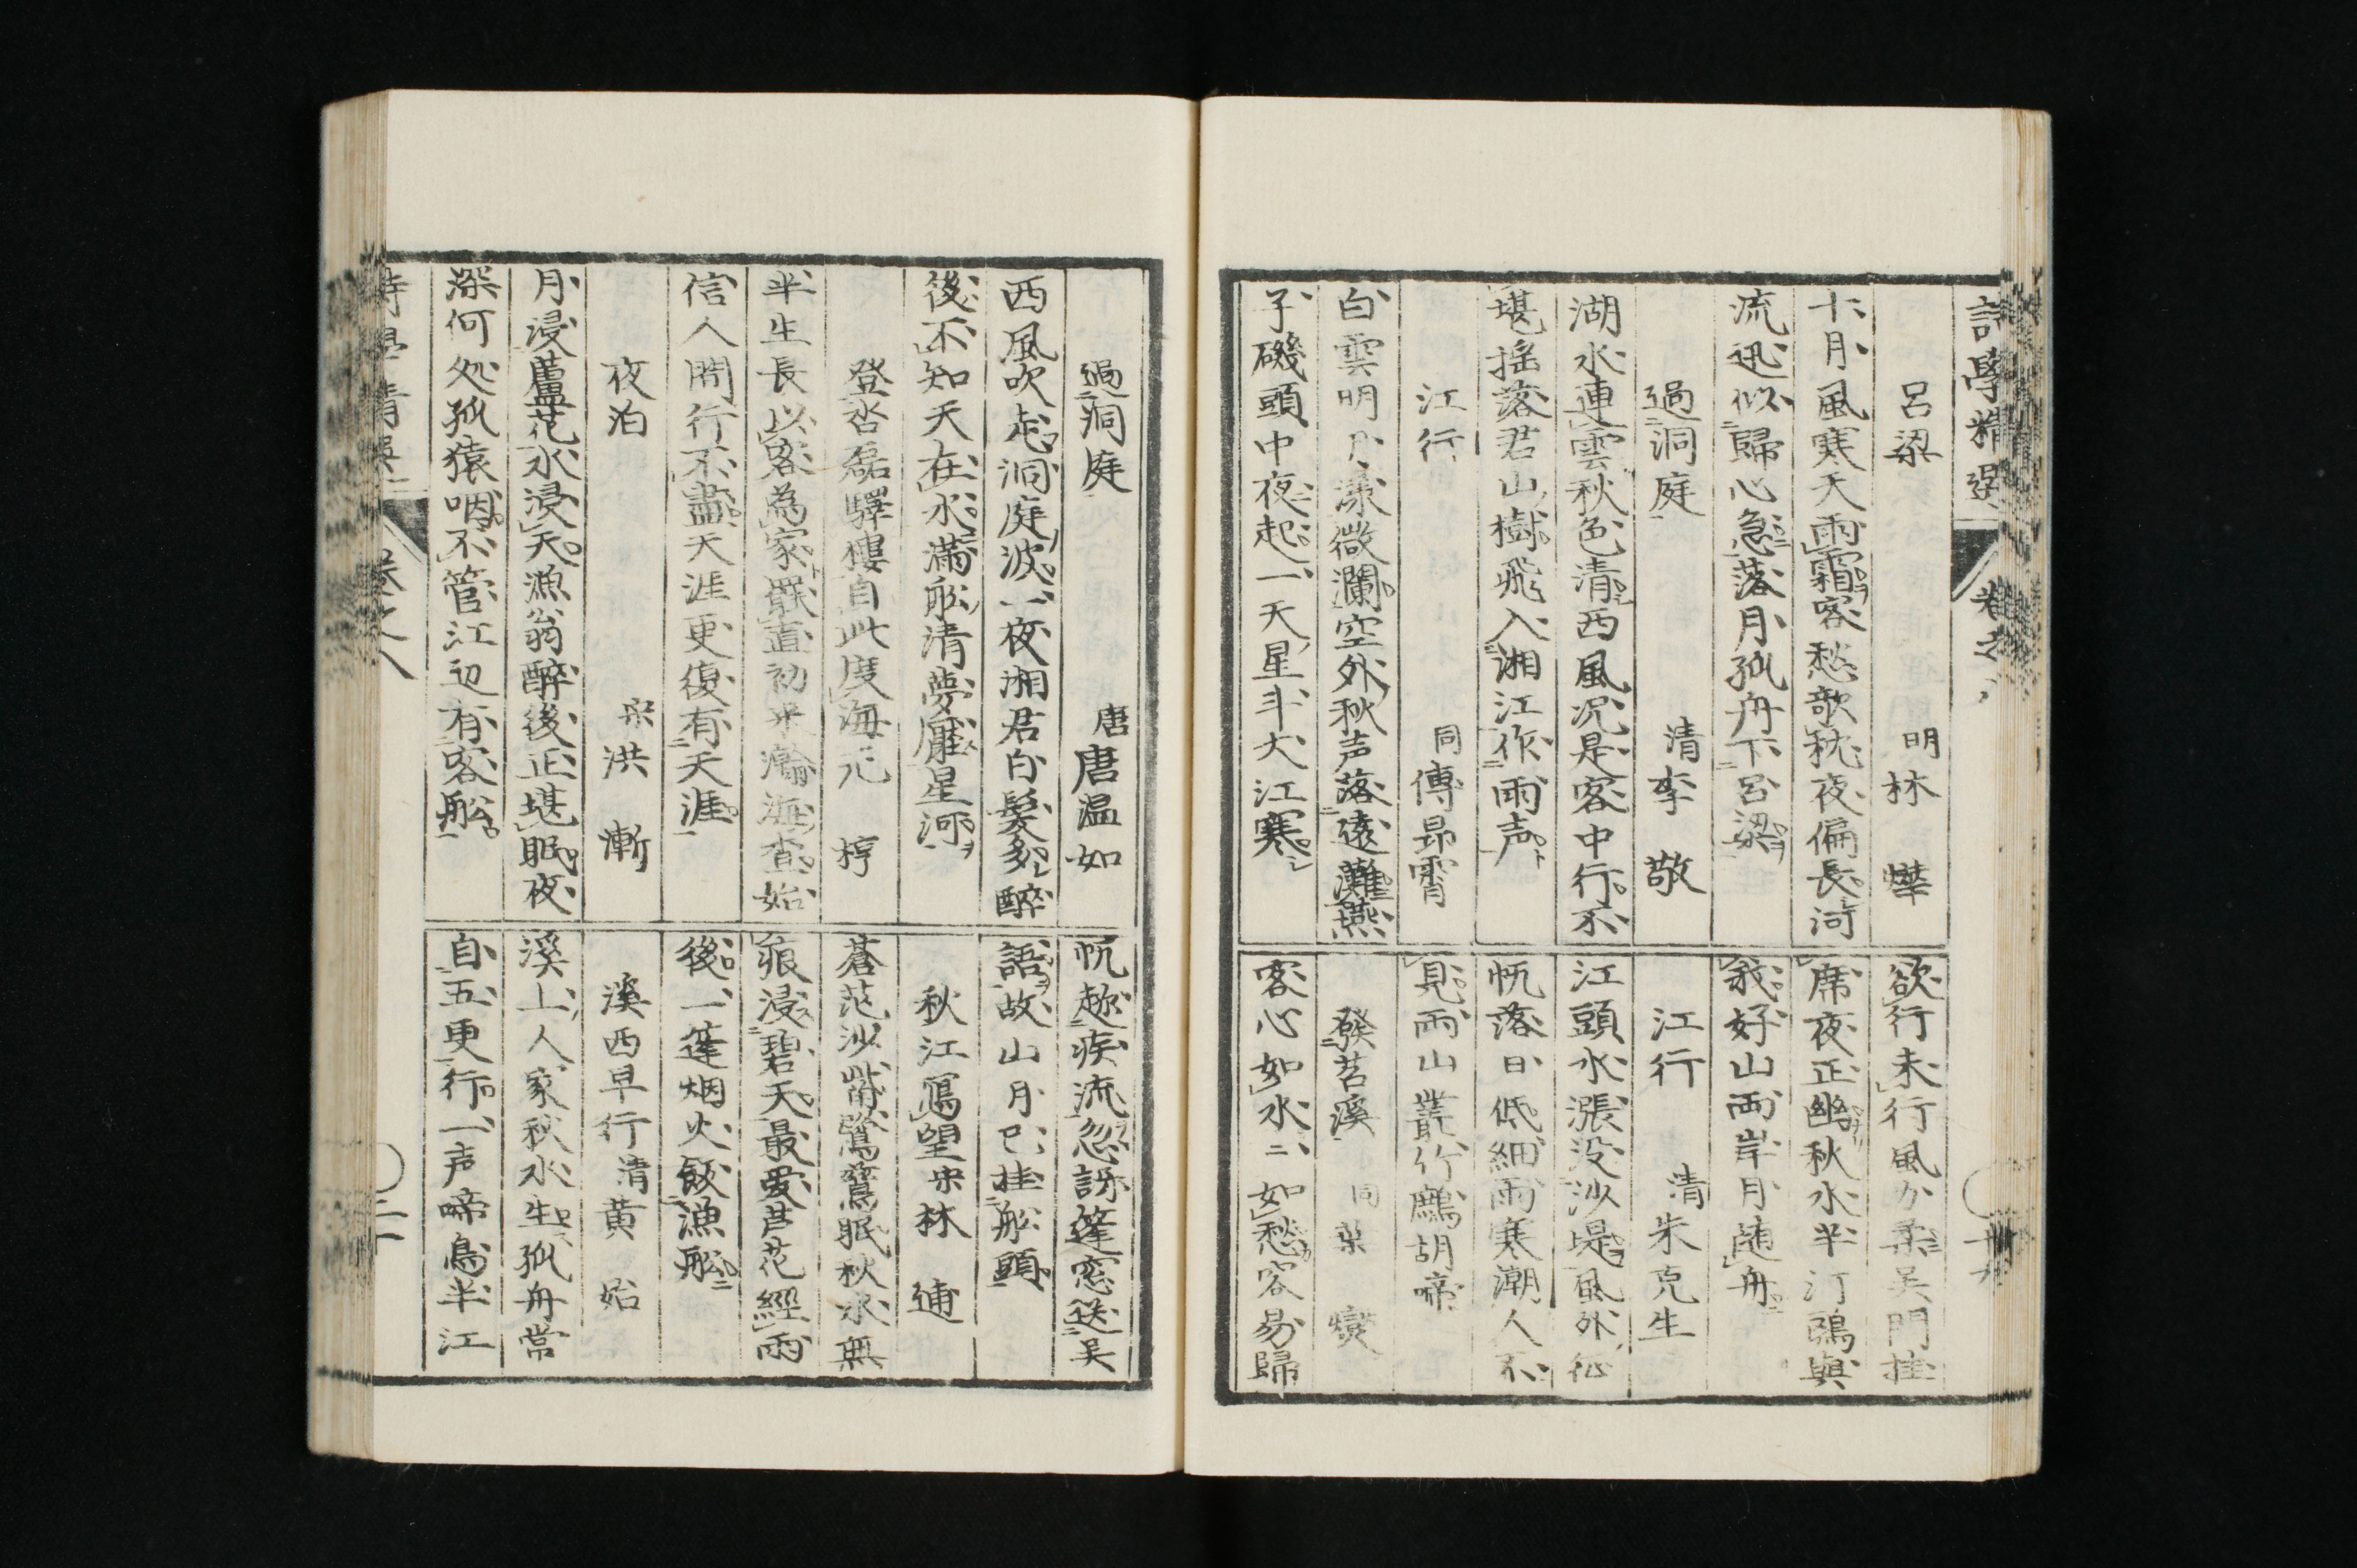 詩學精選 卷之
呂梁 明林 燁
十月風寒天雨霜客愁欹枕夜偏長河
流迅似歸心急落月孤舟下呂梁
過洞庭 清李 敬
湖水連雲秋色清西風况是客中行不
堪揺落君山樹飛入湘江作雨声
江行 同傅昂霄
白雲明月漾微瀾空外秋声落遠灘燕
子磯頭中夜起一天星斗大江寒
欲行未行風力柔吴門挂
席夜正幽秋水半汀鷗與
我好山両岸月随舟
江行 清朱克生
江頭水漲没沙堤風外征
帆落日低細雨寒潮人不
見両山叢竹鷓胡啼
發苕溪 同葉 燮
客心如水二如愁容易歸
過洞庭 唐唐温如
西風吹老洞庭波一夜湘君白髮多醉
後不知天在水滿船清夢壓星河
登沓磊驛樓自此度海元 梈
半生長以客為家罷直初来瀚海查始
信人間行不盡天涯更復有天涯
夜泊 宋洪 漸
月浸蘆花水浸天漁翁醉後正堪眠夜
深何処孤猿咽不管江辺有客船
帆趂疾流忽訝篷窓送吴
語故山月已挂船頭
秋江寫望宋林 逋
蒼茫沙觜鷺鷥眠秋水無
痕浸碧天最愛芦花經雨
後一篷烟火飯漁船
溪西早行清黄 始
溪上人家秋水生孤舟常
自五更行一声啼鳥半江
詩學精選 卷之八